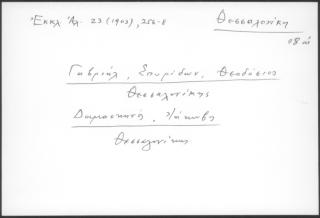 Ἐκκλ Ἀλ. 23 (1903), 256-8
Θεσσαλονίκη
18 αἰ
Γαβριήλ, Σπυρίδων, Θεοδόσιος
Θεσσαλονίκης
Δαμασκηνός, Ἰάκωβος
Θεσσαλονίκης